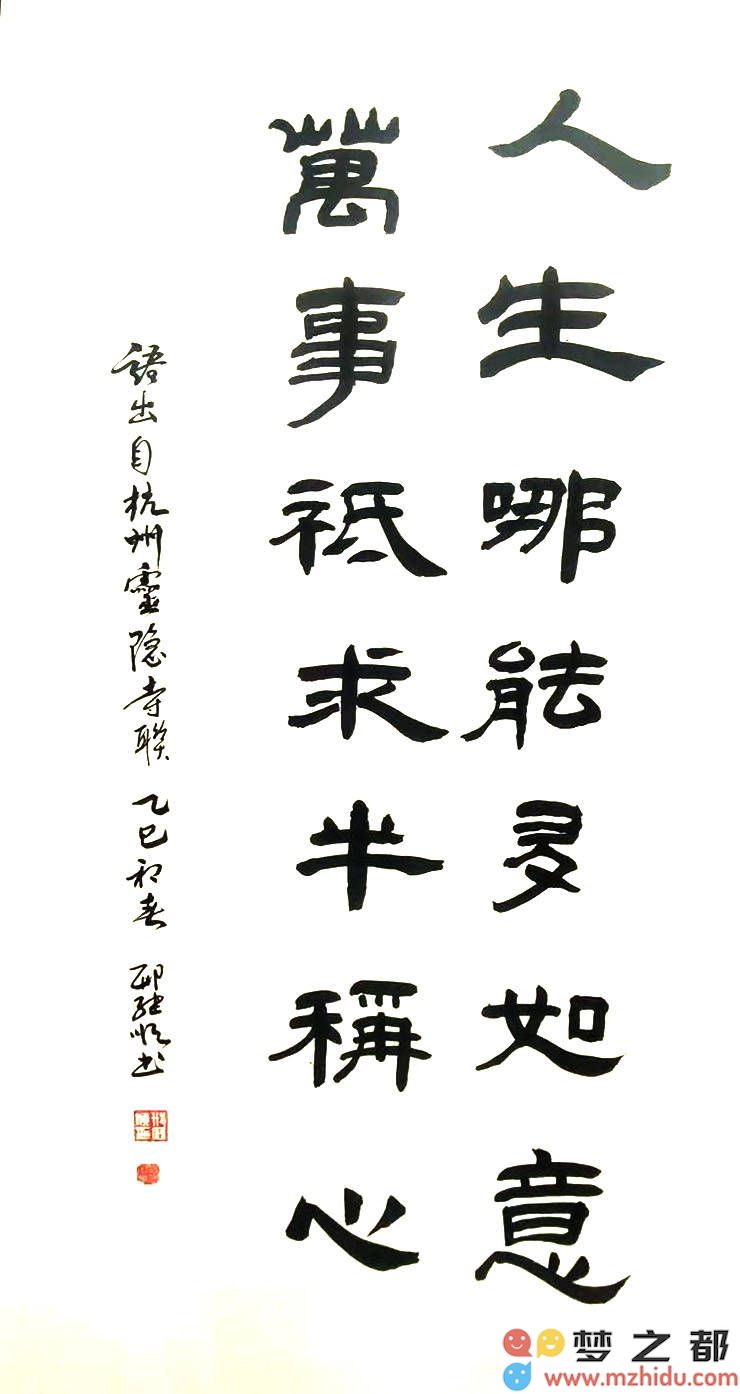 人生哪能多如意
萬事祗求半稱心
語出自杭州靈隐寺联 乙巳初春
梦之都
www.mzhidu.com